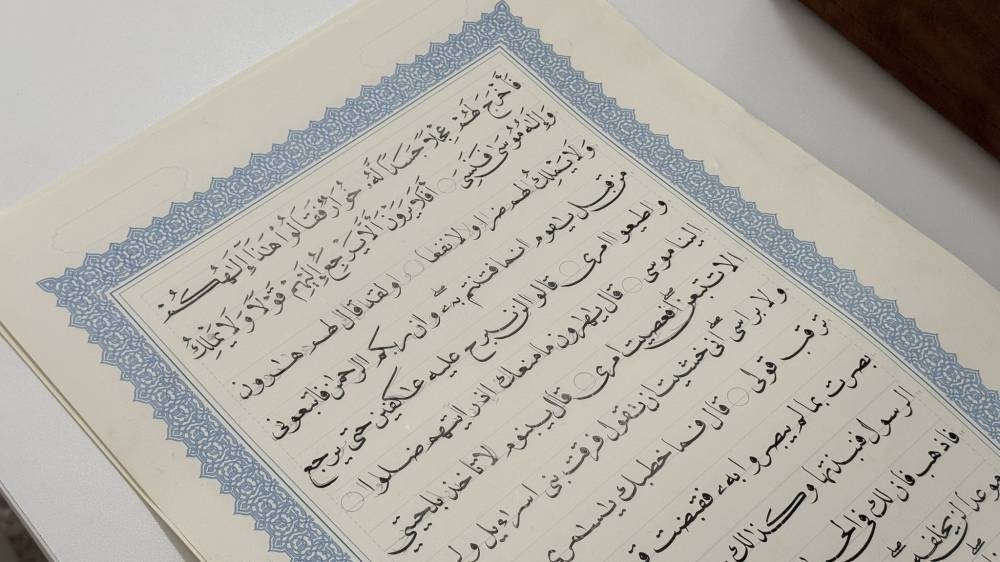 فَأَخْرَجَ لَهُمْ عِجْلًا جَسَدًا لَّهُۥ خُوَارٌ فَقَالُوا هَٰذَآ إِلَٰهُكُمْ
وَإِلَٰهُ مُوسَىٰ فَنَسِيَ ○ أَفَلَا يَرَوْنَ أَلَّا يَرْجِعُ إِلَيْهِمْ قَوْلًا وَلَا يَمْلِكُ
وَلَا يَمْلِكُ لهم ضرا ولا نفعا ○ ولقد قال لهم هارون
من قبل ياقوم انما فتنتم به وان ربكم الرحمن فاتبعونى
واطيعوا امرى ○ قالوا لن نبرح عليه عاكفين حتى يرجع
الينا موسى ○ قال يهرون ما منعك اذ رايتهم ضلوا ○
الا تتبعن افعصيت امرى ○ قال يبنوم لا تاخذ بلحيتى
ولا براسى انى خشيت ان تقول فرقت بنى اسرءيل
ترقب قولى ○ قال فما خطبك يسمرى
بصرت بما لم يبصروا به فقبضت
الرسول فنبذتها وكذلك
فاذهب فان لك فى
موعدا لن تخلفه